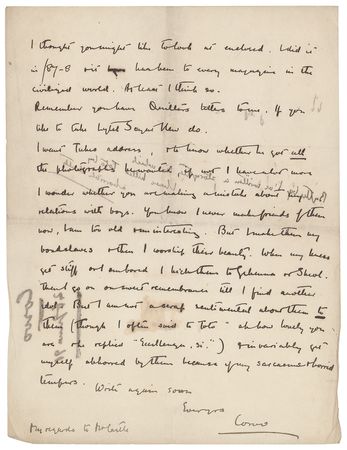 I thought you might like to look at enclosed. I did it
in /87-8 & it has been to every magazine in the
civilized world. At least I think so.
Remember you have Quilter's letters to me. If you
like to take light Sayer then do.
I want Tuke's address, & to know whether he got all
the photographs he wanted, if not I have a lot more
I wonder whether you are making a mistake about my
relations with boys. You know I never make friends of them
now, I am too old & uninteresting. But I make them my
bondslaves & then I worship their beauty. When my knees
get stiff or I am bored I kick them to Gehenna or Sheol.
Then I go on on sweet remembrance till I find another
idol. But I am not a scrap sentimental about them to
them (though I often said to Toto "ah how lovely you
are" & he replied "Excellenza, si.") & invariably get
myself abhorred by them because of my sarcasms & horrid
tempers. Write again soon
Ever yrs
Corvo
My regards to